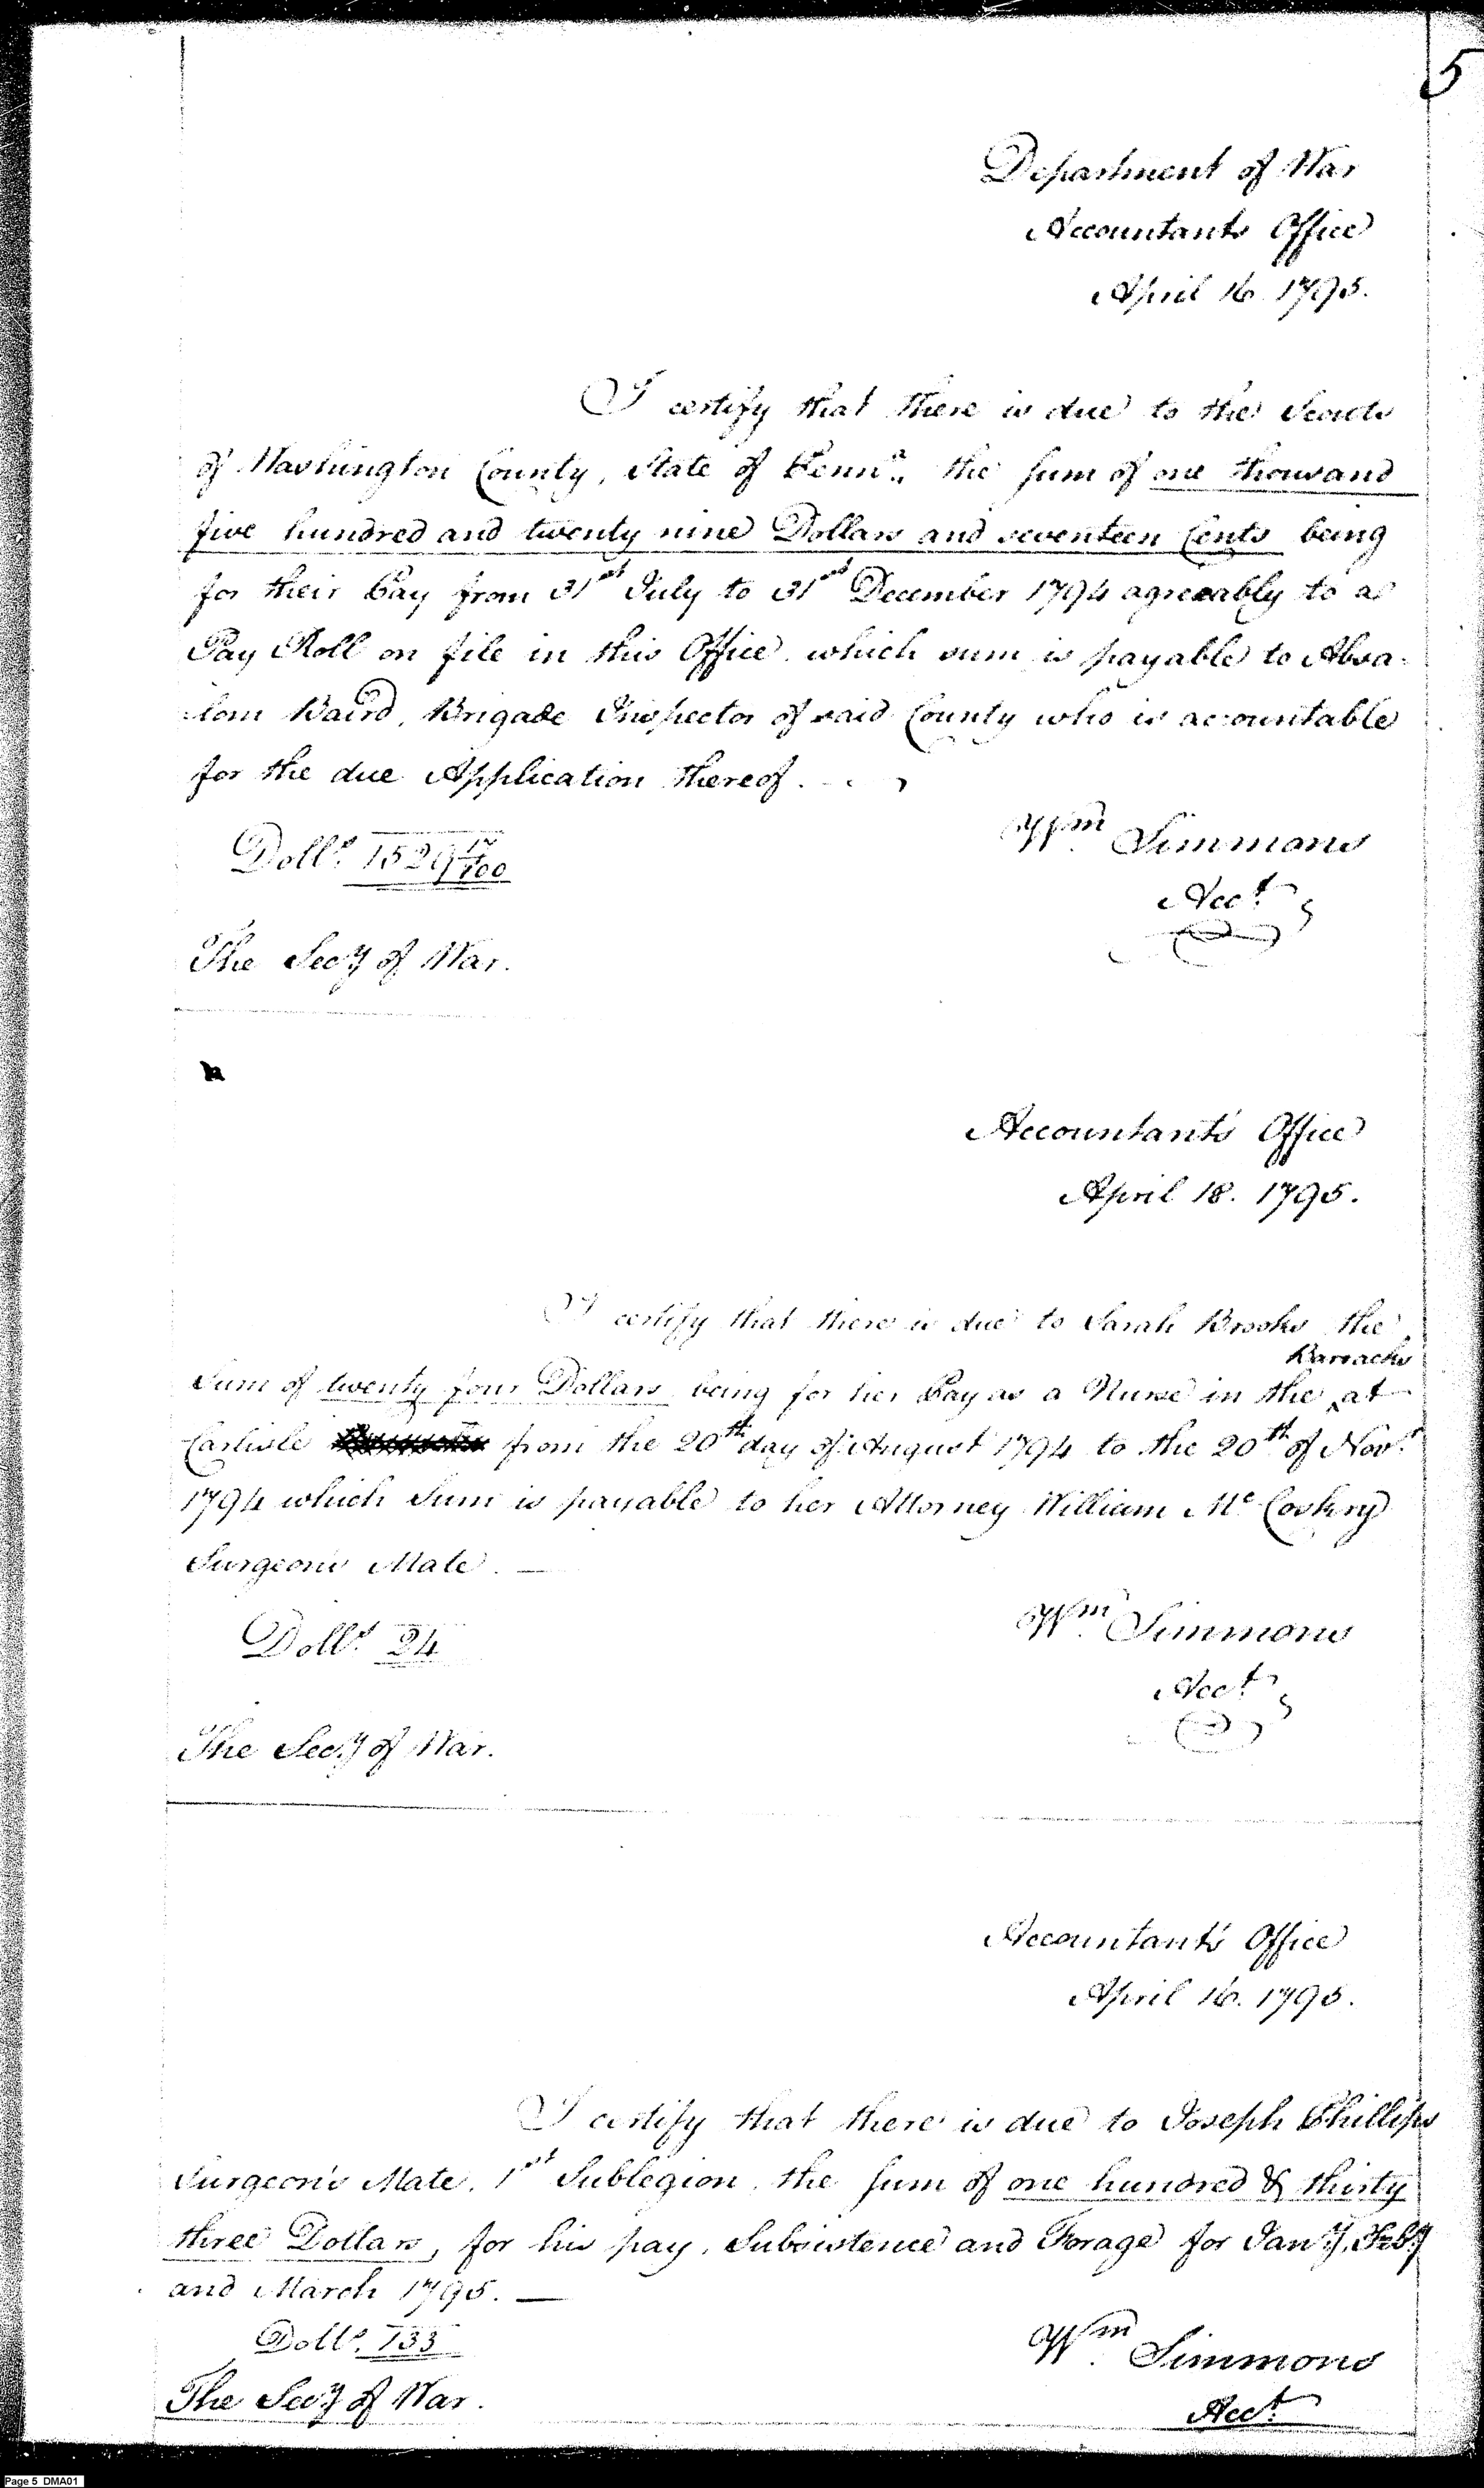 5
Department of War
Accountants Office
April 16. 1795.
I certify that there is due to the Scouts
of Washington County, State of Pennª., the sum of one thousand
five hundred and twenty nine Dollars and seventeen Cents being
for their Pay from 31st July to 31st December 1794 agreeably to a
Pay Roll on file in this Office. which sum is payable to Absa-
-lom Baird, Brigade Inspector of said County who is accountable
for the due Application thereof.
Wm Simmons
Dolls. 1529 17/100
Acct.
The Secy of War.
Accountant's Office
April 18. 1795.
I certify that there is due to Sarah Brooks the
Barracks
Sum of twenty four Dollars being for her Pay as a Nurse in the ‸ at
Carlisle from the 20th day of August 1794 to the 20th of Novr.
1794 which Sum is payable to her Attorney William Mc Coskry
Surgeon's Mate. —
Wm. Simmons
Dolls. 24
Acct.
The Secy of War.
Accountant's Office
April 16. 1795.
I certify that there is due to Joseph Phillips
Surgeon's Mate. 1st Sublegion, the sum of one hundred & thirty
three Dollars, for his pay, Subsistence and Forage for Jany, Feby
and March 1795. —
Dolls. 133
Wm. Simmons
The Secy of War.
Acct.
Page 5 DMA01